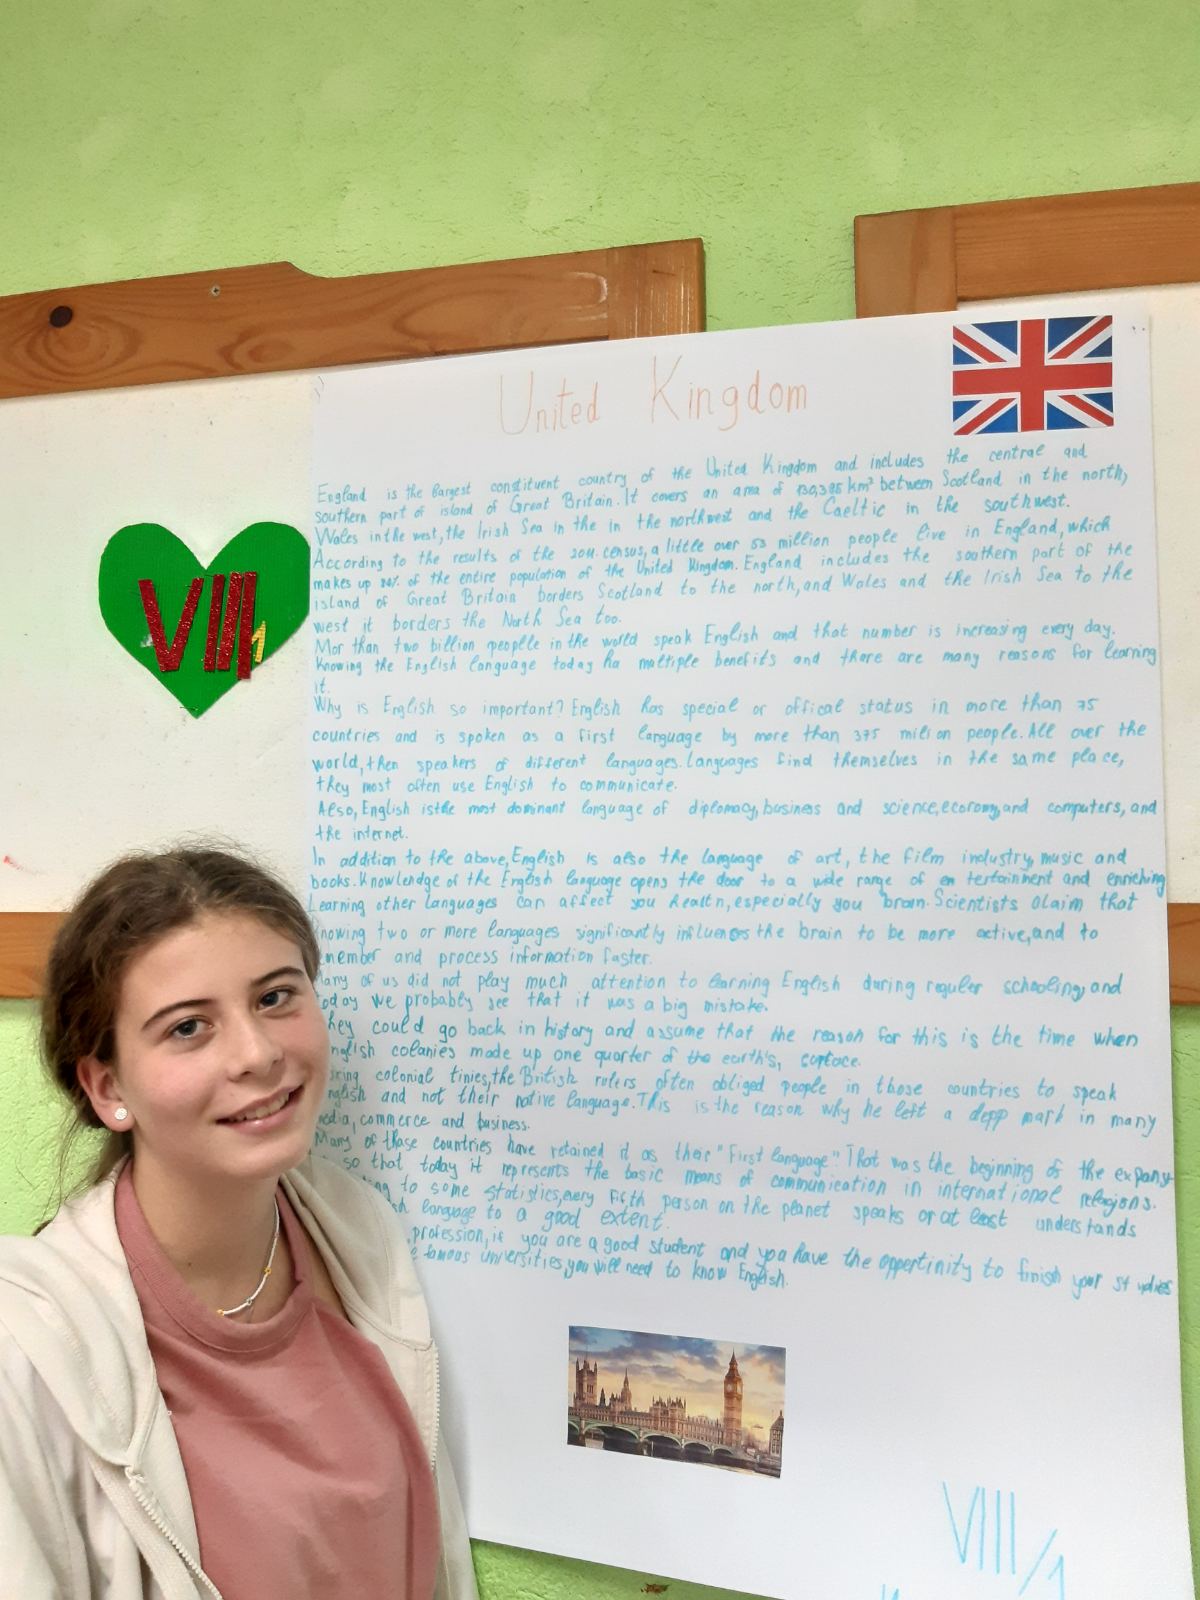 VIII
1
United Kingdom
England is the largest constituent country of the United Kingdom and includes the central and
southern part of island of Great Britain. It covers an area of 130,395 km² between Scotland in the north,
Wales in the west, the Irish Sea in the in the northwest and the Caeltic in the southwest.
According to the results of the 2011. census, a little over 53 million people live in England, which
makes up 84% of the entire population of the United Kingdom. England includes the southern part of the
island of Great Britain borders Scotland to the north, and Wales and the Irish Sea to the
west it borders the North Sea too.
Mor than two billion peoplle in the world speak English and that number is increasing every day.
Knowing the English language today ha multiple benefits and there are many reasons for learning
it.
Why is English so important? English has special or offical status in more than 75
countries and is spoken as a first language by more than 375 milion people. All over the
world, then speakers of different languages. Languages find themselves in the same place,
they most often use English to communicate.
Also, English isthe most dominant language of diplomacy, business and science, economy, and computers, and
the internet.
In addition to the above, English is also the language of art, the film industry, music and
books. Knowlendge of the English language opens the door to a wide range of en tertainment and enriching
Learning other languages can affect you healtn, especially you brain. Scientists claim that
knowing two or more languages significantly influences the brain to be more active, and to
member and process information faster.
Many of us did not play much attention to learning English during reguler schooling, and
today we probably see that it was a big mistake.
hey could go back in history and assume that the reason for this is the time when
nglish colanies made up one quarter of the earth's, surface.
ring colonial tinies, the British rulers often obliged people in those countries to speak
nglish and not their native language. This is the reason why he left a depp mark in many
media, commerce and business.
Many of those countries have retained it as their "First language". That was the beginning of the expany
so that, today it represents the basic means of communication in international relagions.
ing to some statistics, every fifth person on the planet speaks or at least understands
sh language to a good extent.
profession, if you are a good student and you have the oppertinity to finish your st udies
e famous universities, you will need to know English.
VIII/1